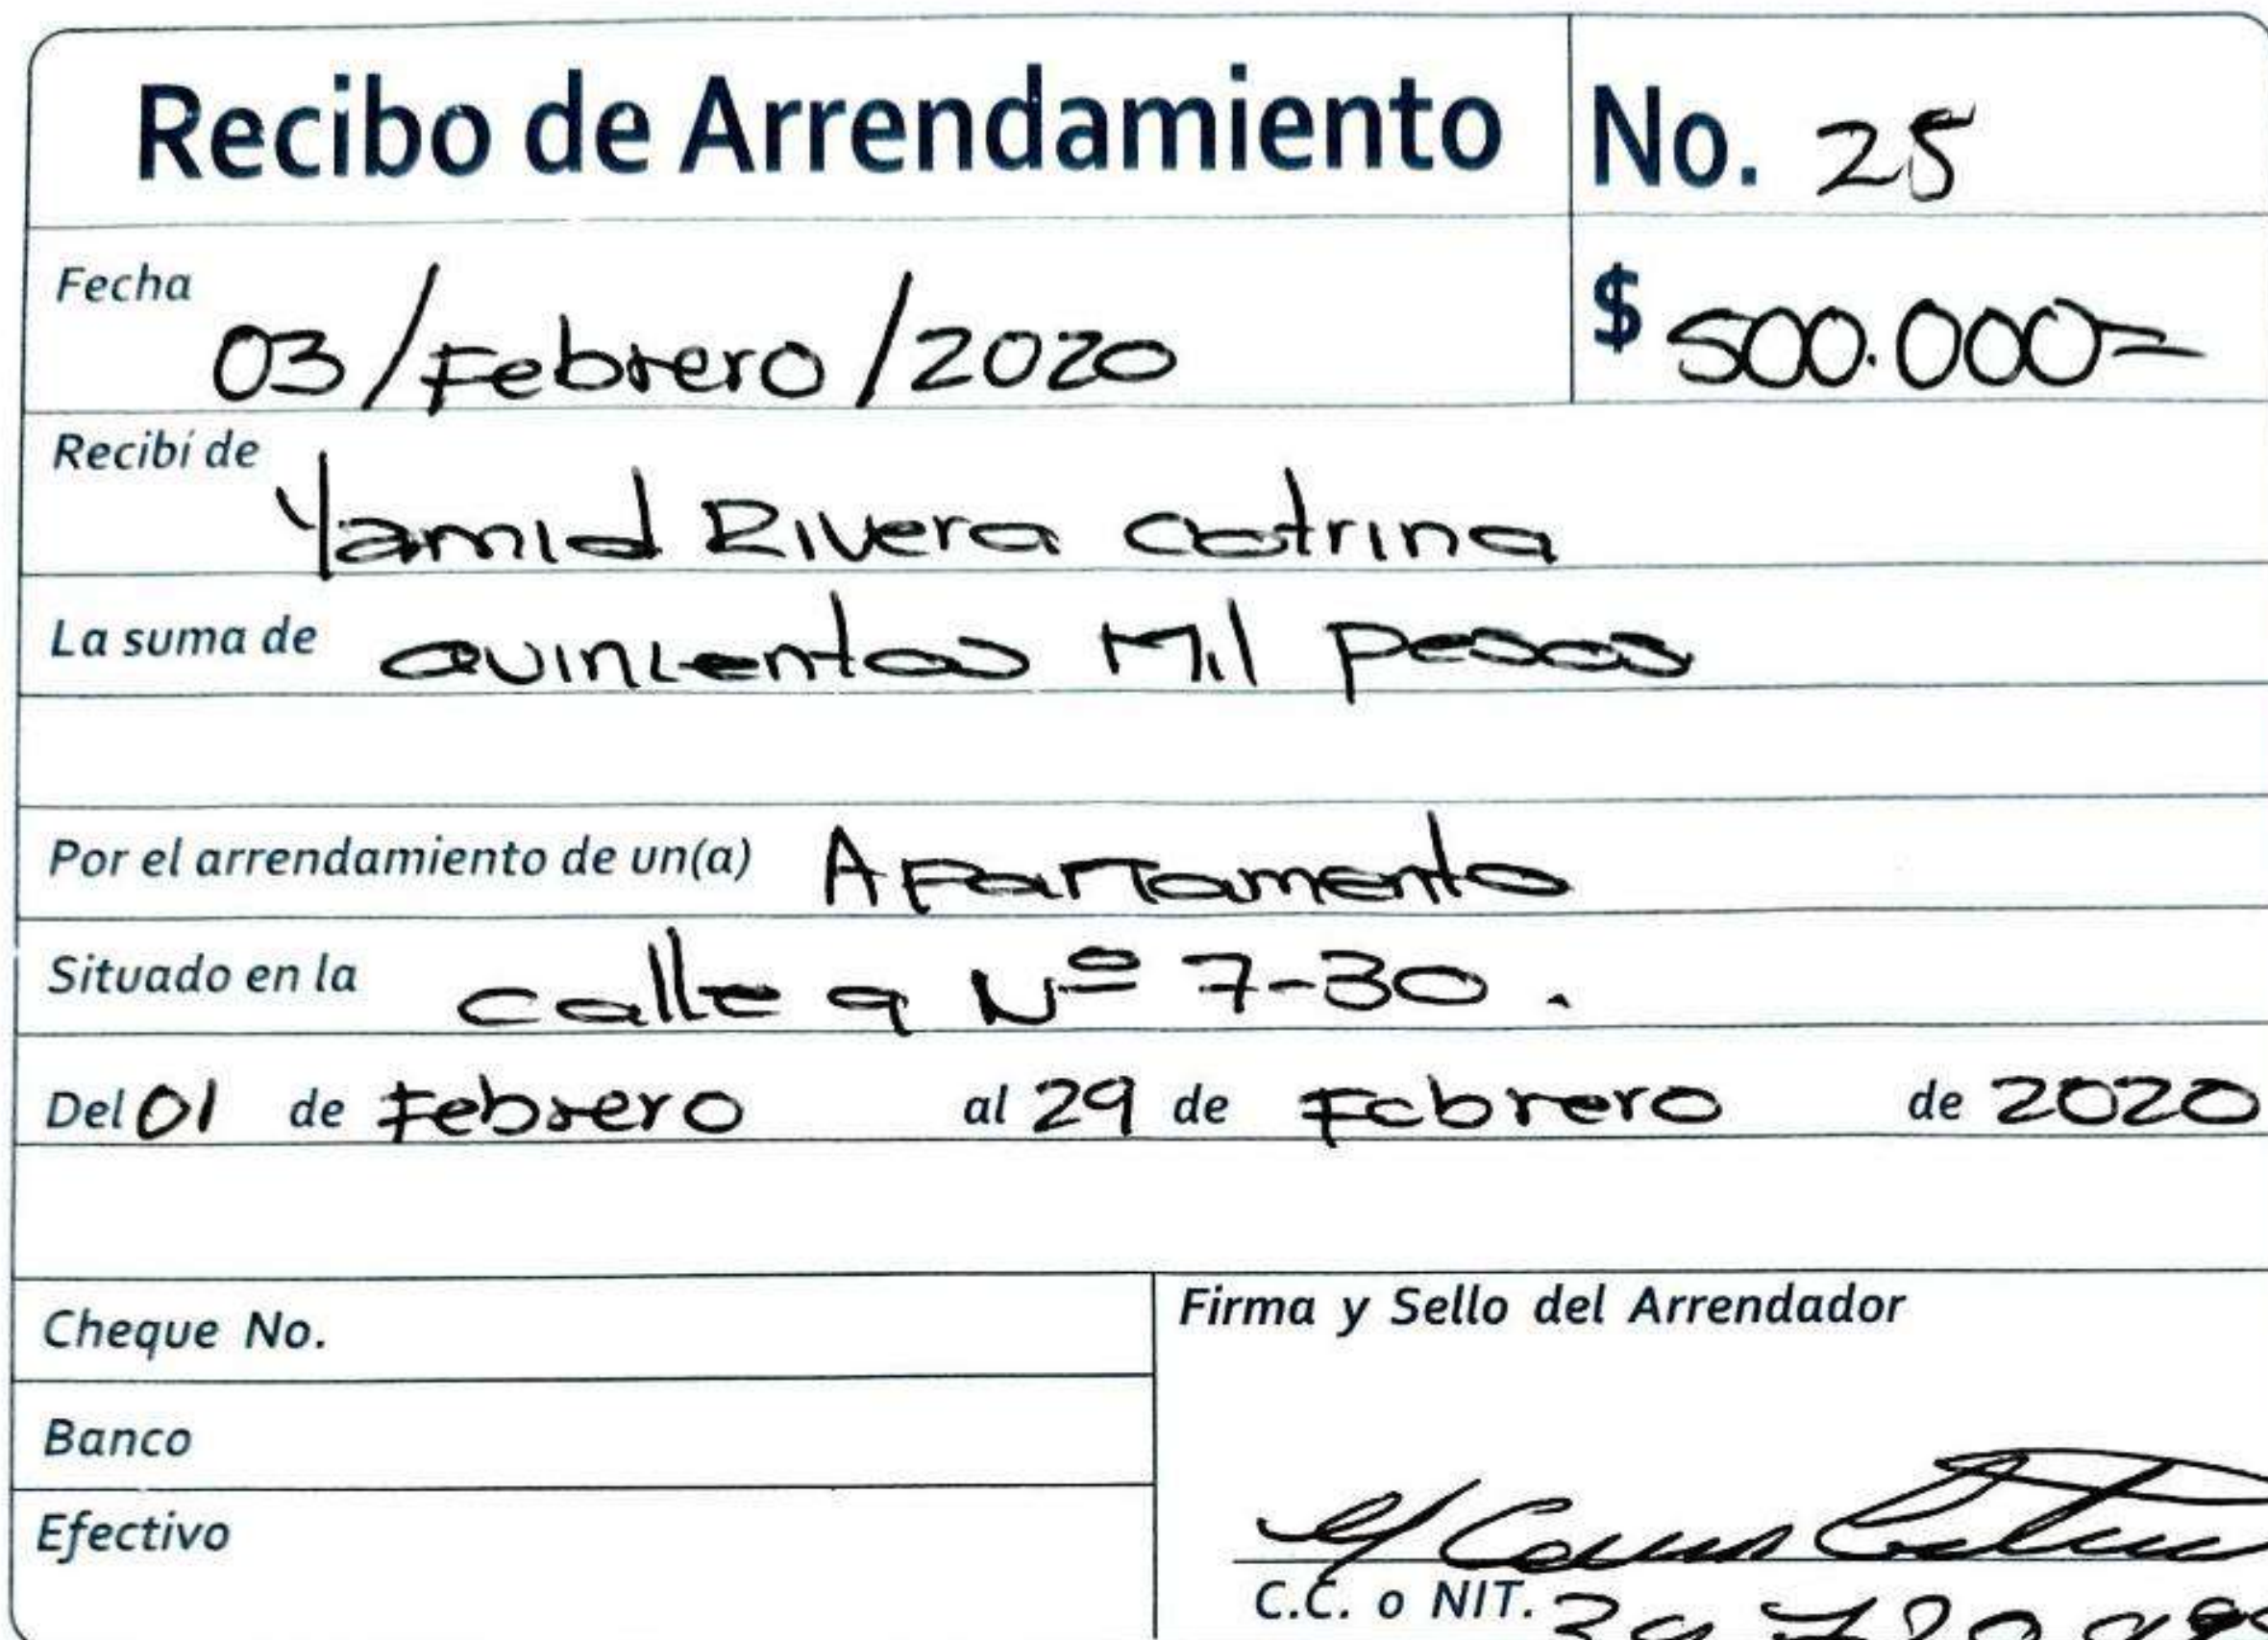 Recibo de Arrendamiento No. 25
Fecha 03/Febrero/2020 $ 500.000=
Recibí de Yamid Rivera Catrina
La suma de Quinientos Mil pesos
Por el arrendamiento de un(a) Apartamento
Situado en la calle 9 Nº 7-30.
Del 01 de Febrero al 29 de Febrero de 2020
Cheque No.
Firma y Sello del Arrendador
Banco
Efectivo
C.C. o NIT.